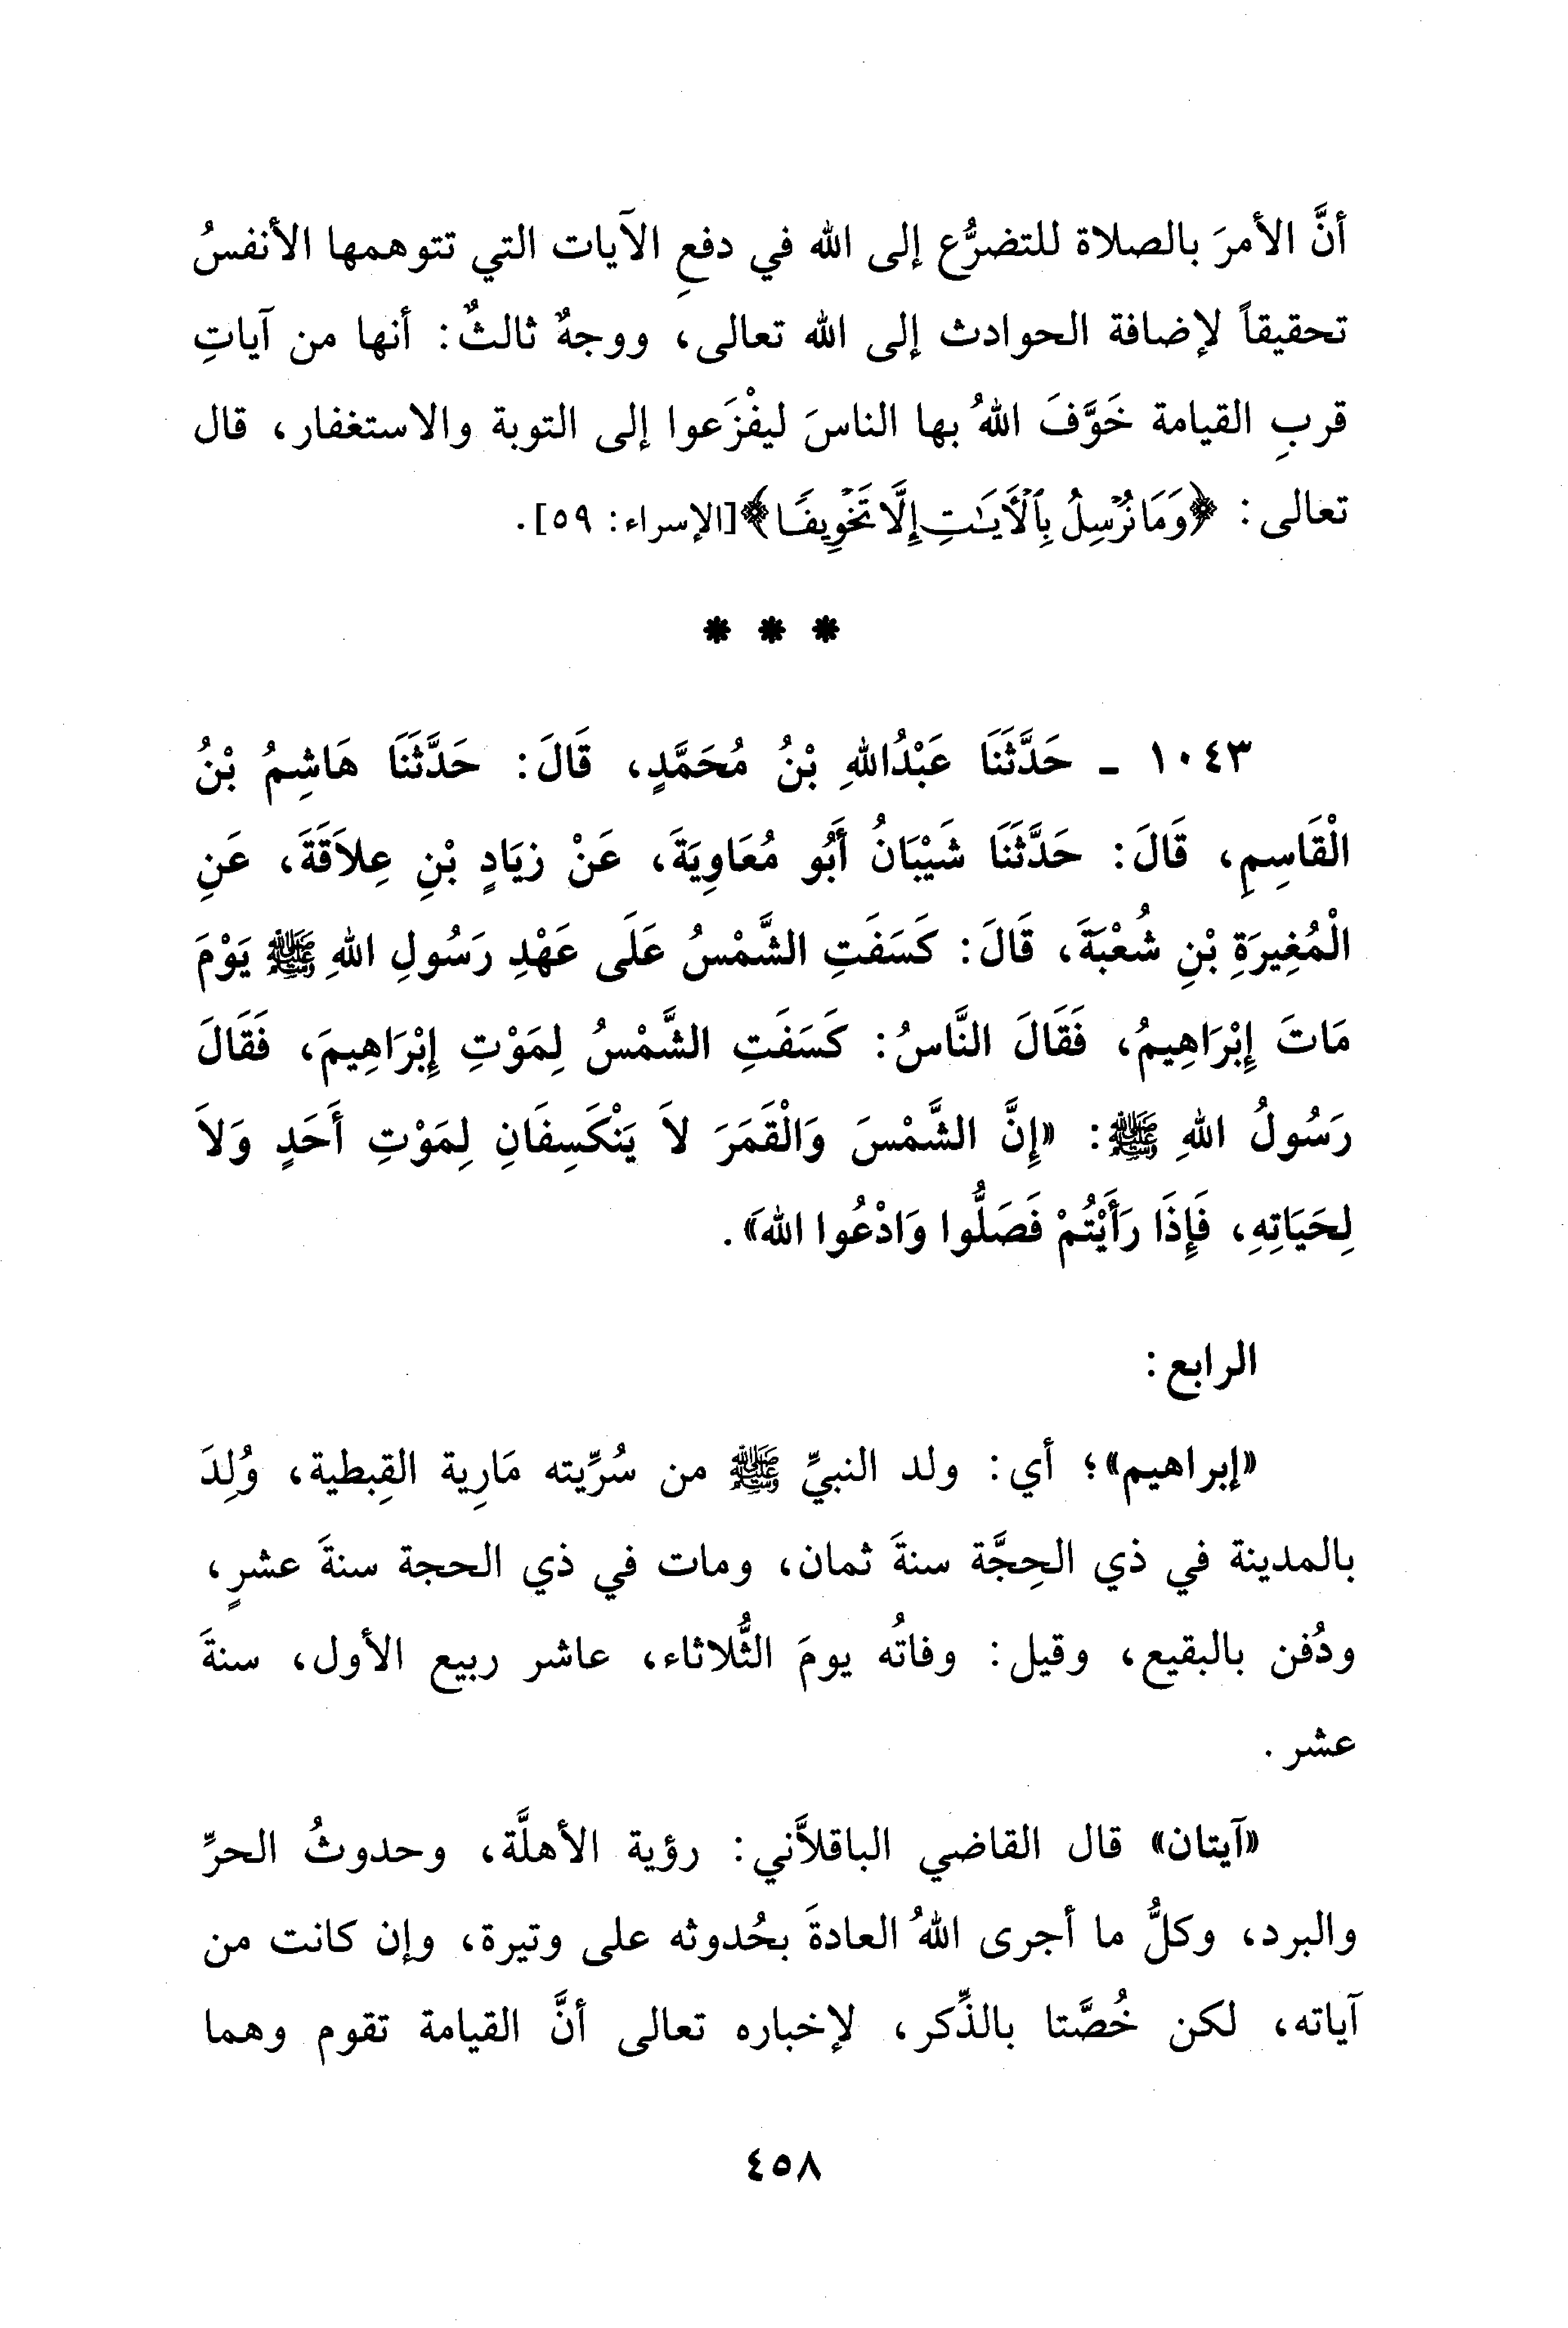 أنَّ الأمرَ بالصلاة للتضرُّع إلى الله في دفعِ الآيات التي تتوهمها الأنفسُ
تحقيقاً لإضافة الحوادث إلى الله تعالى، ووجهٌ ثالثٌ: أنها من آياتِ
قربِ القيامة خَوَّفَ اللهُ بها الناسَ ليفْزَعوا إلى التوبة والاستغفار، قال
تعالى: ﴿وَمَا نُرْسِلُ بِٱلْأَيَـٰتِ إِلَّا تَخْوِيفًا﴾[الإسراء: ٥٩].
* * *
١٠٤٣ ـ حَدَّثَنَا عَبْدُاللهِ بْنُ مُحَمَّدٍ، قَالَ: حَدَّثَنَا هَاشِمُ بْنُ
الْقَاسِمِ، قَالَ: حَدَّثَنَا شَيْبَانُ أَبُو مُعَاوِيَةَ، عَنْ زِيَادِ بْنِ عِلاَقَةَ، عَنِ
الْمُغِيرَةِ بْنِ شُعْبَةَ، قَالَ: كَسَفَتِ الشَّمْسُ عَلَى عَهْدِ رَسُولِ اللهِ ﷺ يَوْمَ
مَاتَ إِبْرَاهِيمُ، فَقَالَ النَّاسُ: كَسَفَتِ الشَّمْسُ لِمَوْتِ إِبْرَاهِيمَ، فَقَالَ
رَسُولُ اللهِ ﷺ: «إِنَّ الشَّمْسَ وَالْقَمَرَ لاَ يَنْكَسِفَانِ لِمَوْتِ أَحَدٍ وَلاَ
لِحَيَاتِهِ، فَإِذَا رَأَيْتُمْ فَصَلُّوا وَادْعُوا اللهَ».
الرابع:
«إبراهيم»؛ أي: ولد النبيِّ ﷺ من سُرِّيته مَارِية القِبطية، وُلِدَ
بالمدينة في ذي الحِجَّة سنةَ ثمان، ومات في ذي الحجة سنةَ عشرٍ،
ودُفن بالبقيع، وقيل: وفاتُه يومَ الثُّلاثاء، عاشر ربيع الأول، سنةَ
عشر.
«آيتان» قال القاضي الباقلاَّني: رؤية الأهلَّة، وحدوثُ الحرِّ
والبرد، وكلُّ ما أجرى اللهُ العادةَ بحُدوثه على وتيرة، وإن كانت من
آياته، لكن خُصَّتا بالذِّكر، لإخباره تعالى أنَّ القيامة تقوم وهما
٤٥٨